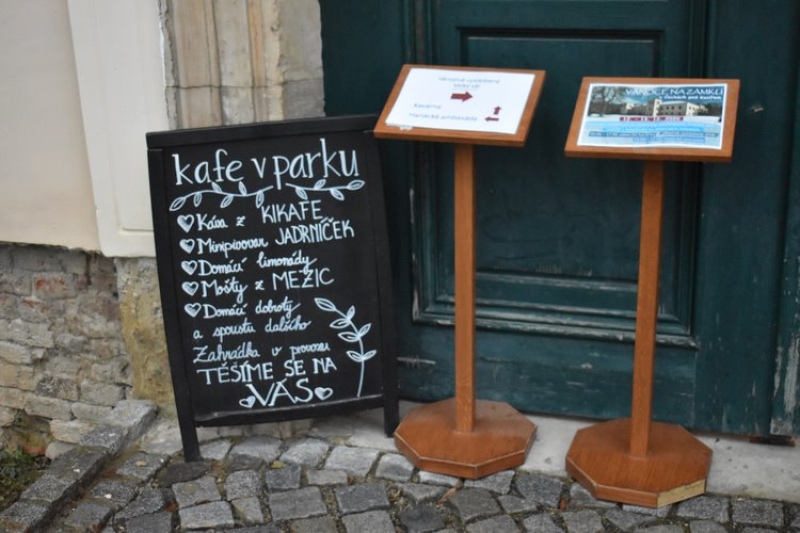 kafe v parku
Káva z KIKAFE
Minipivovar JADRNÍČEK
Domácí limonády
Mošty z MEZIC
Domácí dobroty
a spoustu dalšího
Zahrádka v provozu
TĚŠÍME SE NA
VÁS
Kavárna
Hanácká ambasáda
VÁNOCE NA ZÁMKU
v Čechách pod Kosířem